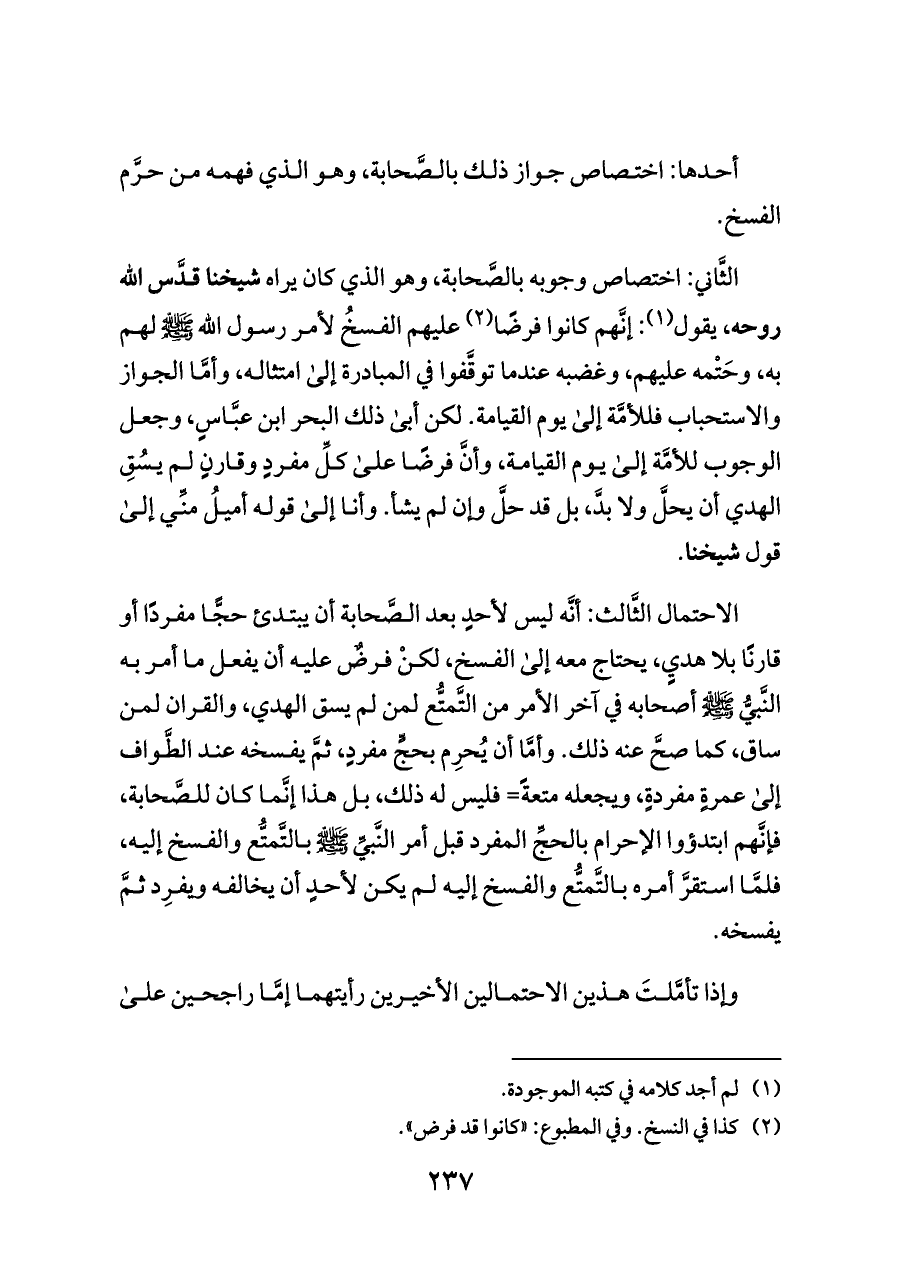 أحدها: اختصاص جواز ذلك بالصَّحابة، وهو الذي فهمه من حرَّم
الفسخ.
الثَّاني: اختصاص وجوبه بالصَّحابة، وهو الذي كان يراه شيخنا قدَّس الله
روحه، يقول(١): إنَّهم كانوا فرضًا(٢) عليهم الفسخُ لأمر رسول الله ﷺ لهم
به، وحَتْمه عليهم، وغضبه عندما توقَّفوا في المبادرة إلىٰ امتثاله، وأمَّا الجواز
والاستحباب فللأمَّة إلىٰ يوم القيامة. لكن أبىٰ ذلك البحر ابن عبَّاسٍ، وجعل
الوجوب للأمَّة إلىٰ يوم القيامة، وأنَّ فرضًا علىٰ كلِّ مفردٍ وقارنٍ لم يسُقِ
الهدي أن يحلَّ ولا بدَّ، بل قد حلَّ وإن لم يشأ. وأنا إلىٰ قوله أميلُ منِّي إلىٰ
قول شيخنا.
الاحتمال الثَّالث: أنَّه ليس لأحدٍ بعد الصَّحابة أن يبتدئ حجًّا مفردًا أو
قارنًا بلا هديٍ، يحتاج معه إلىٰ الفسخ، لكنْ فرضٌ عليه أن يفعل ما أمر به
النَّبيُّ ﷺ أصحابه في آخر الأمر من التَّمتُّع لمن لم يسق الهدي، والقران لمن
ساق، كما صحَّ عنه ذلك. وأمَّا أن يُحرِم بحجٍّ مفردٍ، ثمَّ يفسخه عند الطَّواف
إلىٰ عمرةٍ مفردةٍ، ويجعله متعةً= فليس له ذلك، بل هذا إنَّما كان للصَّحابة،
فإنَّهم ابتدؤوا الإحرام بالحجِّ المفرد قبل أمر النَّبيِّ ﷺ بالتَّمتُّع والفسخ إليه،
فلمَّا استقرَّ أمره بالتَّمتُّع والفسخ إليه لم يكن لأحدٍ أن يخالفه ويفرِد ثمَّ
يفسخه.
وإذا تأمَّلتَ هذين الاحتمالين الأخيرين رأيتهما إمَّا راجحين علىٰ
(١) لم أجد كلامه في كتبه الموجودة.
(٢) كذا في النسخ. وفي المطبوع: «كانوا قد فرض».
٢٣٧